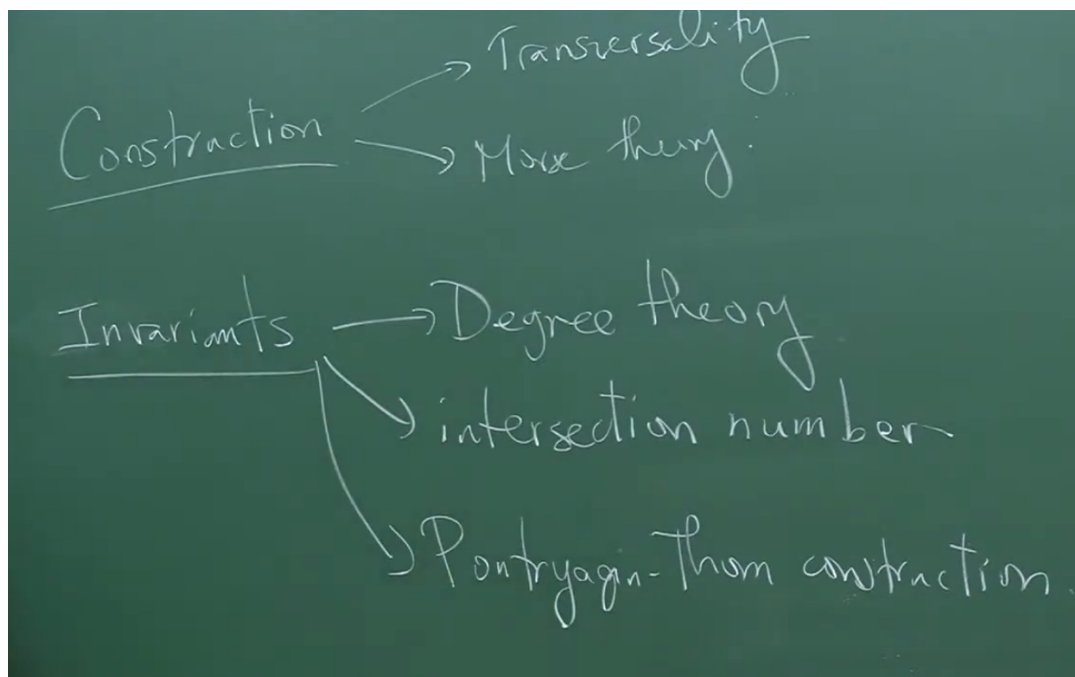 Transversality
Construction
Morse theory.
Invariants
Degree theory
intersection number
Pontryagin-Thom construction.